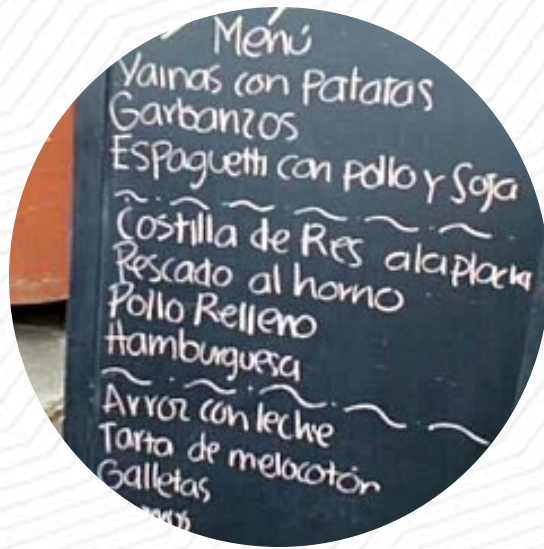 Menú
Vainas con patatas
Garbanzos
Espaguetti con pollo y Soja
Costilla de Res a la placha
Pescado al horno
Pollo Relleno
Hamburguesa
Arroz con leche
Tarta de melocotón
Galletas